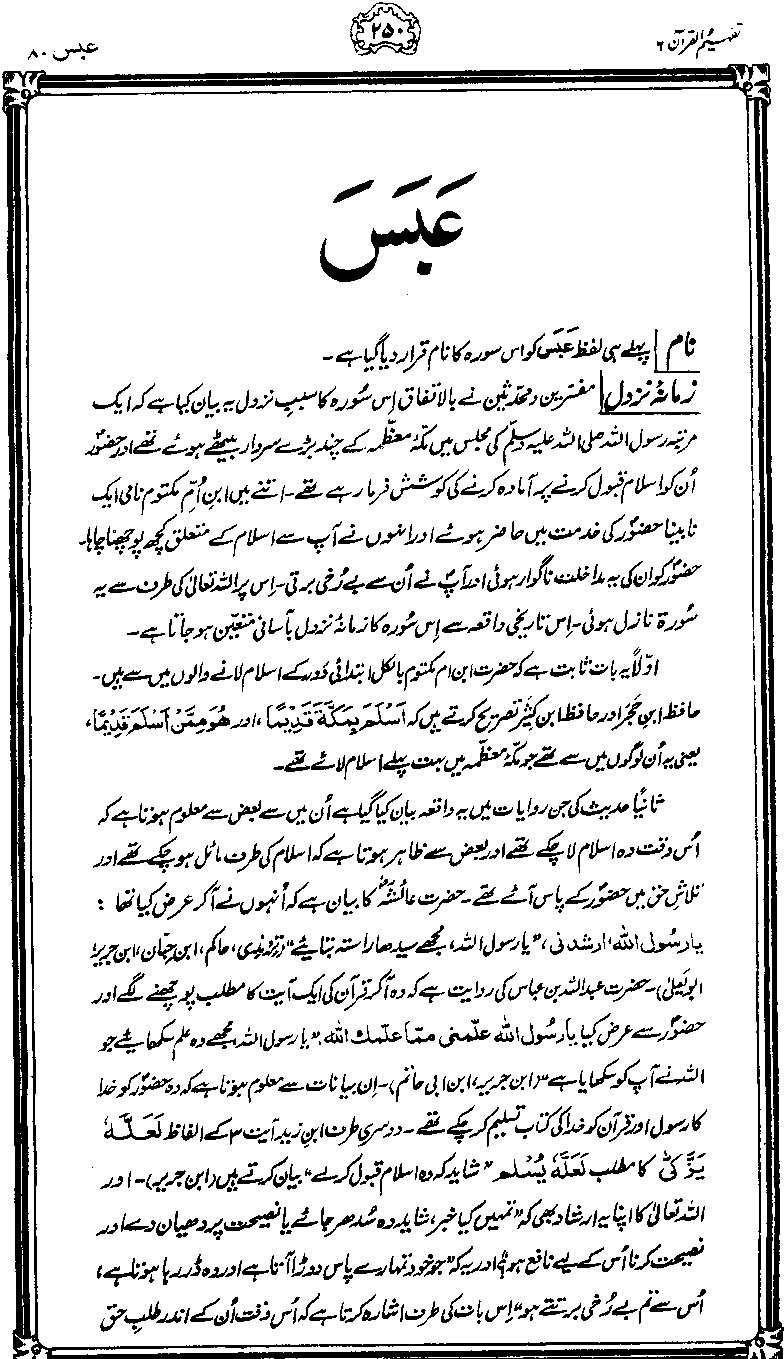 تفہیم القرآن ۶
۲۵۰
عبس ۸۰
عَبَسَ
نام | پہلے ہی لفظ عَبَسَ کو اس سورہ کا نام قرار دیا گیا ہے۔
زمانۂ نزول | مفسّرین و محدّثین نے بالاتفاق اِس سُورہ کا سببِ نزول یہ بیان کیا ہے کہ ایک
مرتبہ رسول اللہ صلی اللہ علیہ وسلّم کی مجلس میں مکّۂ معظّمہ کے چند بڑے سردار بیٹھے ہوئے تھے اور حضورؐ
اُن کو اسلام قبول کرنے پر آمادہ کرنے کی کوشش فرما رہے تھے۔ اتنے میں ابنِ اُمِّ مکتوم نامی ایک
نابینا حضورؐ کی خدمت میں حاضر ہوئے اور انہوں نے آپ سے اسلام کے متعلق کچھ پوچھنا چاہا۔
حضورؐ کو ان کی یہ مداخلت ناگوار ہوئی اور آپؐ نے اُن سے بے رُخی برتی۔ اِس پر اللہ تعالیٰ کی طرف سے یہ
سُورۃ نازل ہوئی۔ اِس تاریخی واقعہ سے اِس سُورہ کا زمانۂ نزول بآسانی متعیّن ہو جاتا ہے۔
اوّلاً یہ بات ثابت ہے کہ حضرت ابن ام مکتوم بالکل ابتدائی دَور کے اسلام لانے والوں میں سے ہیں۔
حافظ ابنِ حَجَر اور حافظ ابن کَثیر تصریح کرتے ہیں کہ اَسْلَمَ بِمَکَّۃَ قَدِیْمًا، اور ھُوَ مِمَّنْ اَسْلَمَ قَدِیْمًا،
یعنی یہ اُن لوگوں میں سے تھے جو مکّۂ معظمہ میں بہت پہلے اسلام لائے تھے۔
ثانیاً حدیث کی جن روایات میں یہ واقعہ بیان کیا گیا ہے اُن میں سے بعض سے معلوم ہوتا ہے کہ
اُس وقت وہ اسلام لا چکے تھے اور بعض سے ظاہر ہوتا ہے کہ اسلام کی طرف مائل ہو چکے تھے اور
تلاشِ حق میں حضورؐ کے پاس آئے تھے۔ حضرت عائشہؓ کا بیان ہے کہ اُنہوں نے آکر عرض کیا تھا:
یا رسُولَ اللہ ارشدنی، "یا رسول اللہ، مجھے سیدھا راستہ بتائیے" (ترمذی، حاکم، ابن حِبّان، ابن جریر،
ابو یَعلیٰ)۔ حضرت عبداللہ بن عباس کی روایت ہے کہ وہ آکر قرآن کی ایک آیت کا مطلب پوچھنے لگے اور
حضورؐ سے عرض کیا یا رسُول اللہ علّمنی ممّا علّمك اللہ، "یا رسول اللہ، مجھے وہ علم سکھائیے جو
اللہ نے آپ کو سکھایا ہے" (ابن جریر، ابن ابی حاتم)۔ اِن بیانات سے معلوم ہوتا ہے کہ وہ حضورؐ کو خدا
کا رسول اور قرآن کو خدا کی کتاب تسلیم کر چکے تھے۔ دوسری طرف ابنِ زید آیت ۳ کے الفاظ لَعَلَّہٗ
یَزَّکّٰیٓ کا مطلب لَعَلَّہٗ یُسْلم "شاید کہ وہ اسلام قبول کر لے" بیان کرتے ہیں (ابن جریر)۔ اور
اللہ تعالیٰ کا اپنا یہ ارشاد بھی کہ "تمہیں کیا خبر، شاید وہ سُدھر جائے یا نصیحت پر دھیان دے اور
نصیحت کرنا اُس کے لیے نافع ہو؟" اور یہ کہ "جو خود تمہارے پاس دوڑا آتا ہے اور وہ ڈر رہا ہوتا ہے،
اُس سے تم بے رُخی برتتے ہو" اِس بات کی طرف اشارہ کرتا ہے کہ اُس وقت اُن کے اندر طلبِ حق